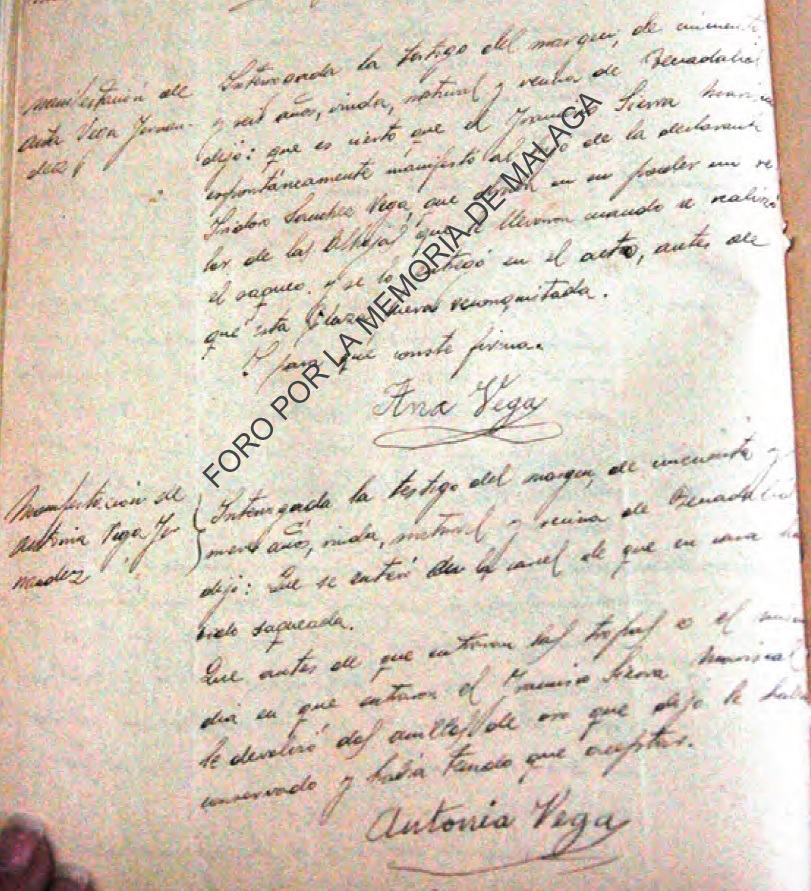 Manifestación de
Ana Vega Fernan-
dez
Interrogada la testigo del margen, de cincuenta
y seis años, viuda, natural y vecina de Benadalid
dijo: que es cierto que el Francisco Sierra Marisca
espontáneamente manifestó al de la declarante
Isidoro Sanchez Vega, que en su poder un re
loj de las Alhajas que se llevaron cuando se realizó
el saqueo. y se lo entregó en el acto, antes de
que esta plaza fuera reconquistada.
Y para que conste firma.
Ana Vega
FORO POR LA MEMORIA DE MALAGA
Manifestación de
Antonia Vega Fer
nandez
Interrogada la testigo del margen, de cincuenta y
nueve años, viuda, natural y vecina de Benadalid
dijo: Que se enteró en la carcel de que en casa ha
sido saqueada.
Que antes de que entraran las tropas o el mismo
dia en que entraron el Francisco Sierra Mariscal
le devolvió dos anillos de oro que dijo le había
conservado y había tenido que aceptar.
Antonia Vega